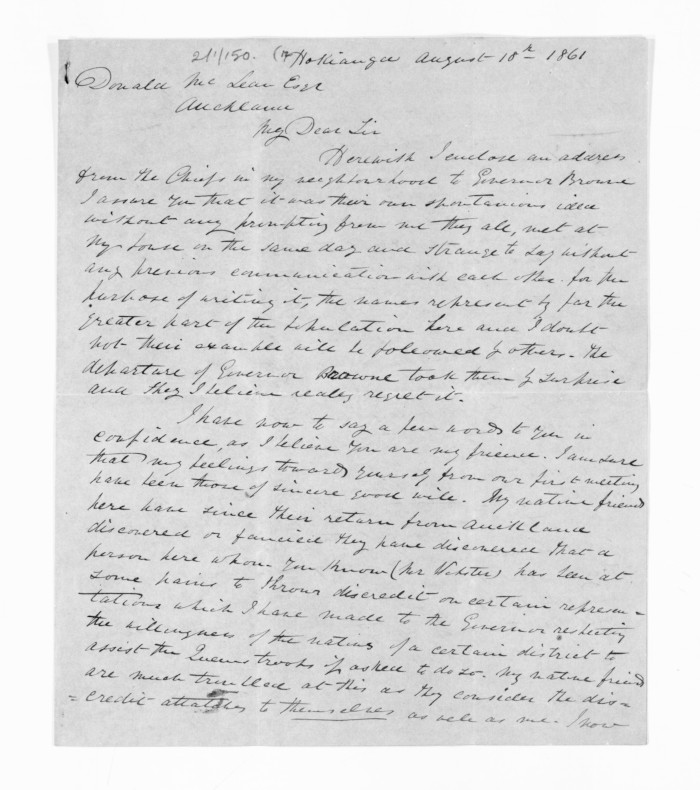 Hokianga August 18th 1861
Donald Mc Lean Esqr
Auckland
My Dear Sir
Herewith I enclose an address
from the Chiefs in my neighbourhood to Governor Browne
I assure you that it was their own spontanious idea
without any prompting from me they all, met at
my house on the same day and strange to say without
any previous communication with each other for the
purpose of writing it, the names represent by far the
greater part of the population here and I doubt
not their example will be followed by others. The
departure of Governor Browne took them by surprise
and they I believe realey regret it.
I have now to say a few words to you in
confidence, as I believe you are my friend. I am sure
that my feelings toward yourself from our first meeting
have been those of sincere good will. My native friends
here have since their return from Auckland
discovered or fancied they have discovered that a
person here whom you know (Mr Webster) has been at
some pains to throw discredit on certain represen=
tations which I have made to the Governor respecting
the willingness of the natives of a certain district to
assist the Queens troops if asked to do so. My native friends
are much troubled at this as they consider the dis=
=credit attatches to themselves as well as me. I now